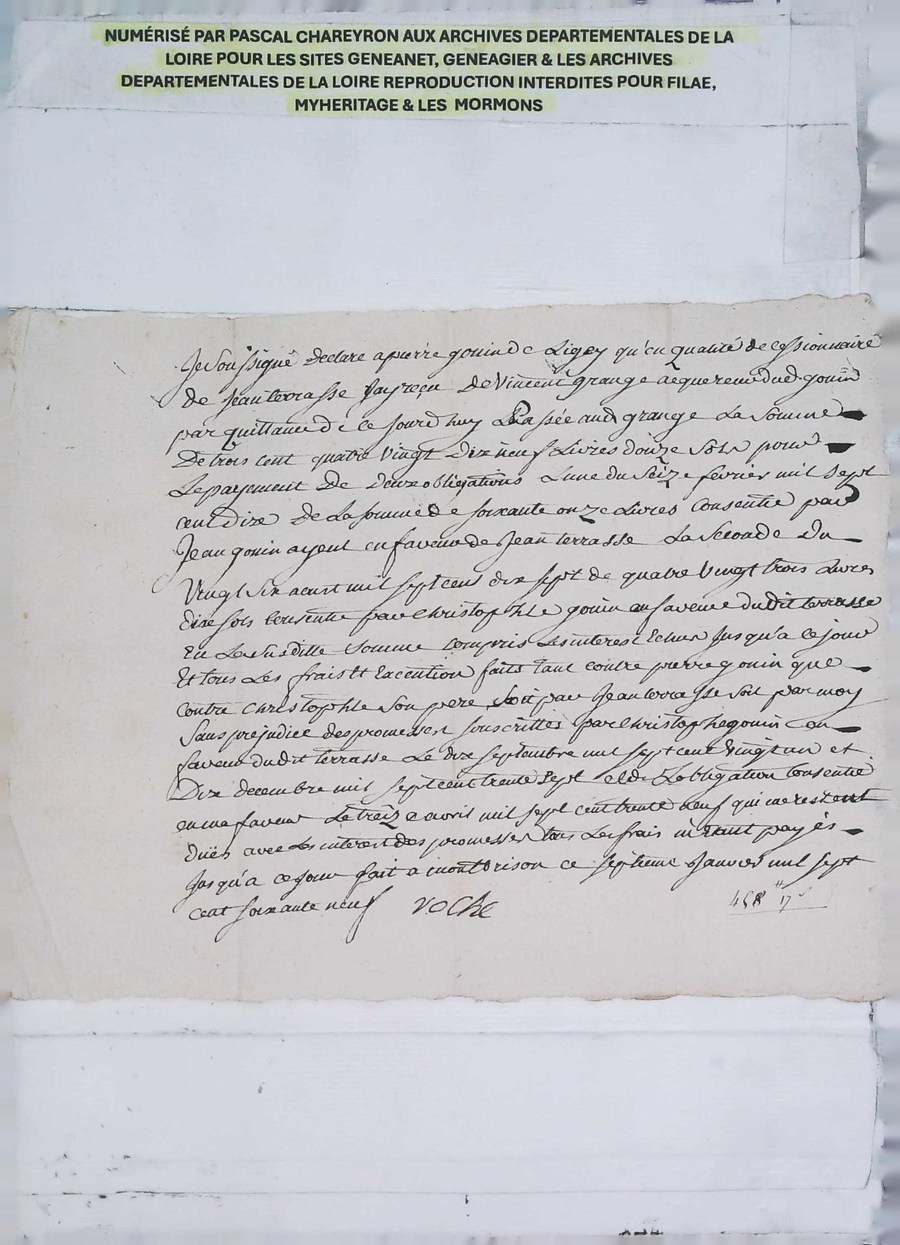 NUMÉRISÉ PAR PASCAL CHAREYRON AUX ARCHIVES DEPARTEMENTALES DE LA
LOIRE POUR LES SITES GENEANET, GENEAGIER & LES ARCHIVES
DEPARTEMENTALES DE LA LOIRE REPRODUCTION INTERDITES POUR FILAE,
MYHERITAGE & LES MORMONS
Je Soussigné declare a pierre gouin de Ligey qu'en qualité de cessionnaire
de Jean terrasse Jay reçu de Vincent grange acquereur dud. gouin
par quittance de ce jourd'huy Passée aud grange La Somme
De trois cent quatre Vingt Dix neuf Livres douze Sols pour
Le payement De deux obligations Lune du Seize fevrier mil Sept
cent Dix De La somme de soixante onze Livres Consentie par
Jean gouin ayeul en faveur de Jean terrasse La Seconde du
Vingt Six aoust mil sept cens dix sept de quatre Vingt trois Livres
dix sols Consentie par Christophle gouin en faveur dudit terrasse
En La Susditte Somme Compris Les interest Echus Jusqu'a ce jour
Et tous Les frais Et Execution faits tant contre pierre gouin que
Contre Christophle Son pere Soit par Jean terrasse Soit par moy
Sans prejudice des promesses souscrittes par Christophe gouin en
faveur dudit terrasse Le dix septembre mil sept cent Vingt un et
Dix decembre mil sept cent trente Sept et de Lobligation Consentie
en ma faveur Le treize avril mil sept cent trente neuf qui me restent
Duës avec Les interest des promesses tous Les frais m'etant payés
Jusqu'a ce jour fait a montbrison ce septieme Janvier mil sept
cent soixante neuf VOChe
17